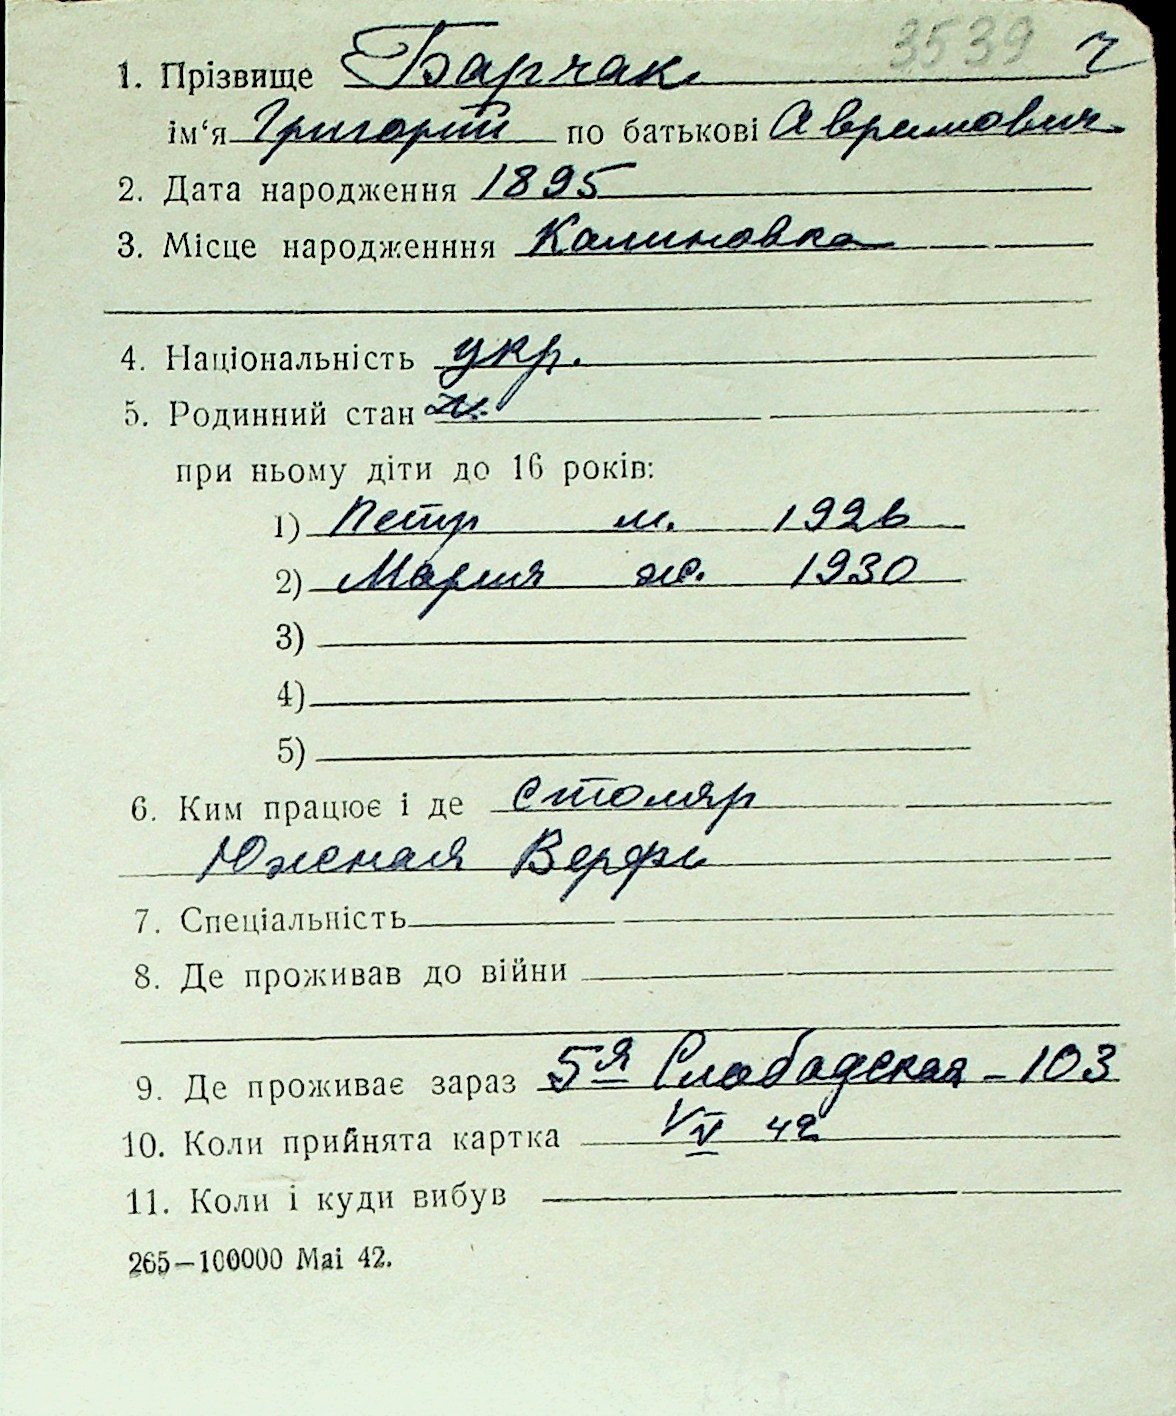 3539 ч
1. Прізвище Барчак
ім‘я Григорий по батькові Аврамович
2. Дата народження 1895
3. Місце народженння Калиновка
4. Національність укр.
5. Родинний стан
при ньому діти до 16 років:
1) Петр м. 1926
2) Мария ж. 1930
3)
4)
5)
6. Ким працює і де столяр
Южная Верфь
7. Спеціальність
8. Де проживав до війни
9. Де проживає зараз 5я Слободская - 103
10. Коли прийнята картка 42
11. Коли і куди вибув
265—100000 Mai 42.